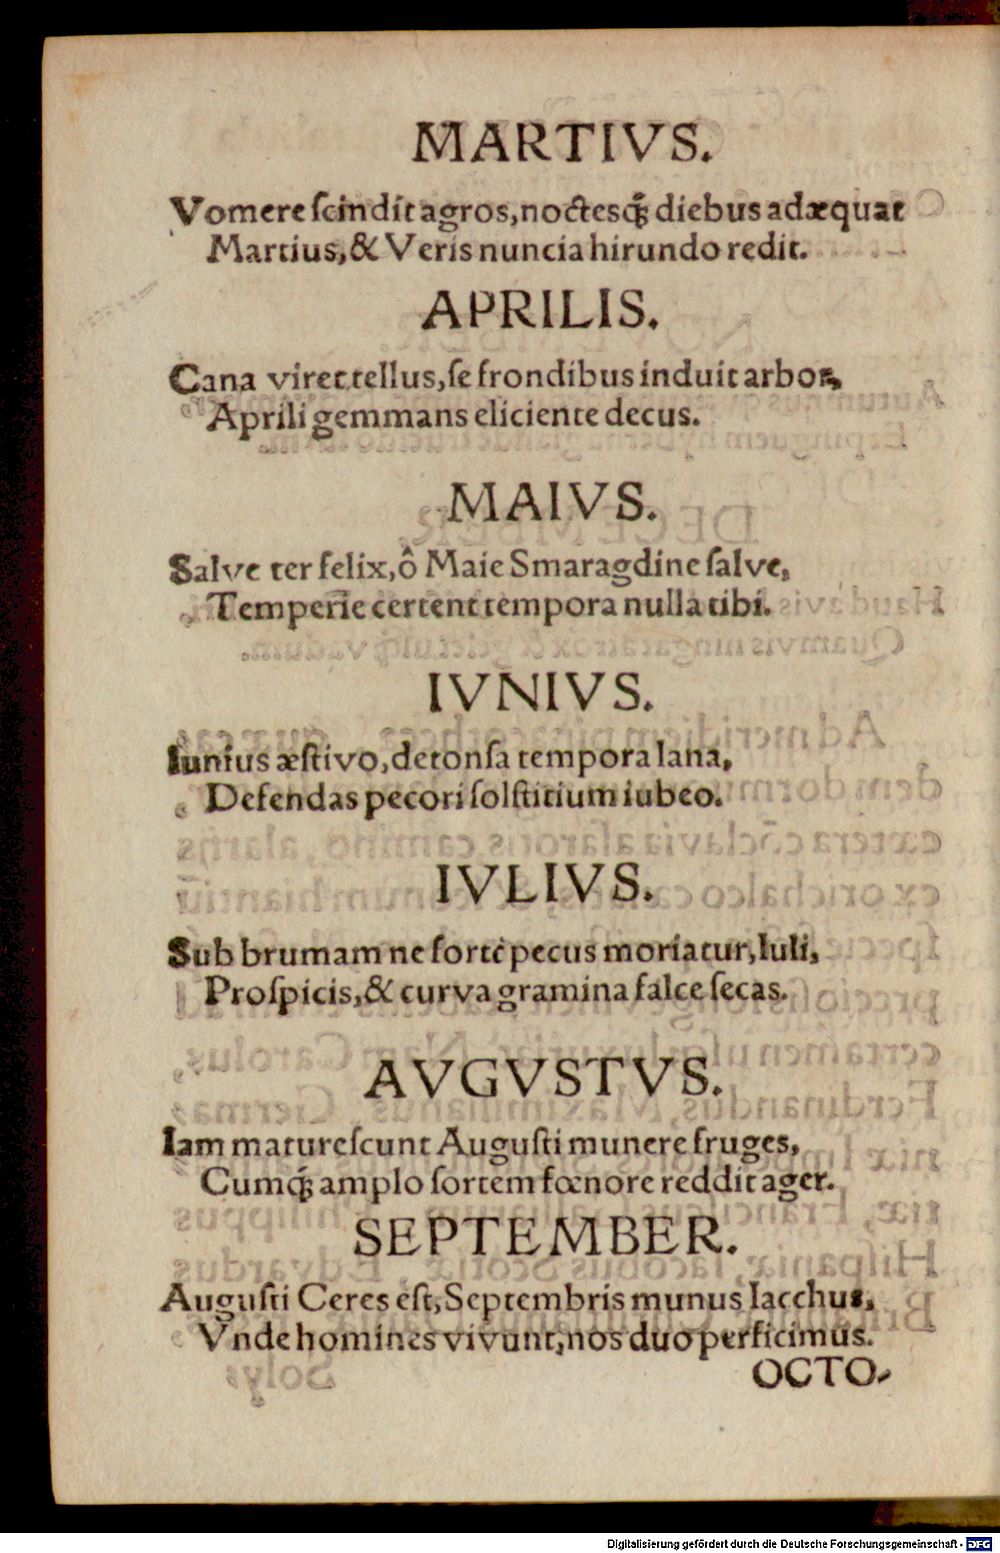 MARTIVS.
Vomere ſcindit agros, noctesqꝫ diebus adæquat
Martius, & Veris nuncia hirundo redit.
APRILIS.
Cana viret tellus, ſe frondibus induit arbor,
Aprili gemmans eliciente decus.
MAIVS.
Salve ter felix, ô Maie Smaragdine ſalve,
Temperie certent tempora nulla tibi.
IVNIVS.
Iunius æſtivo, detonſa tempora lana,
Defendas pecori ſolſtitium iubeo.
IVLIVS.
Sub brumam ne fortè pecus moriatur, Iuli,
Proſpicis, & curva gramina falce ſecas.
AVGVSTVS.
Iam matureſcunt Auguſti munere fruges,
Cumqꝫ amplo ſortem fœnore reddit ager.
SEPTEMBER.
Auguſti Ceres eſt, Septembris munus Iacchus,
Vnde homines vivunt, nos duo perficimus.
OCTO-
Digitalisierung gefördert durch die Deutsche Forschungsgemeinschaft - DFG